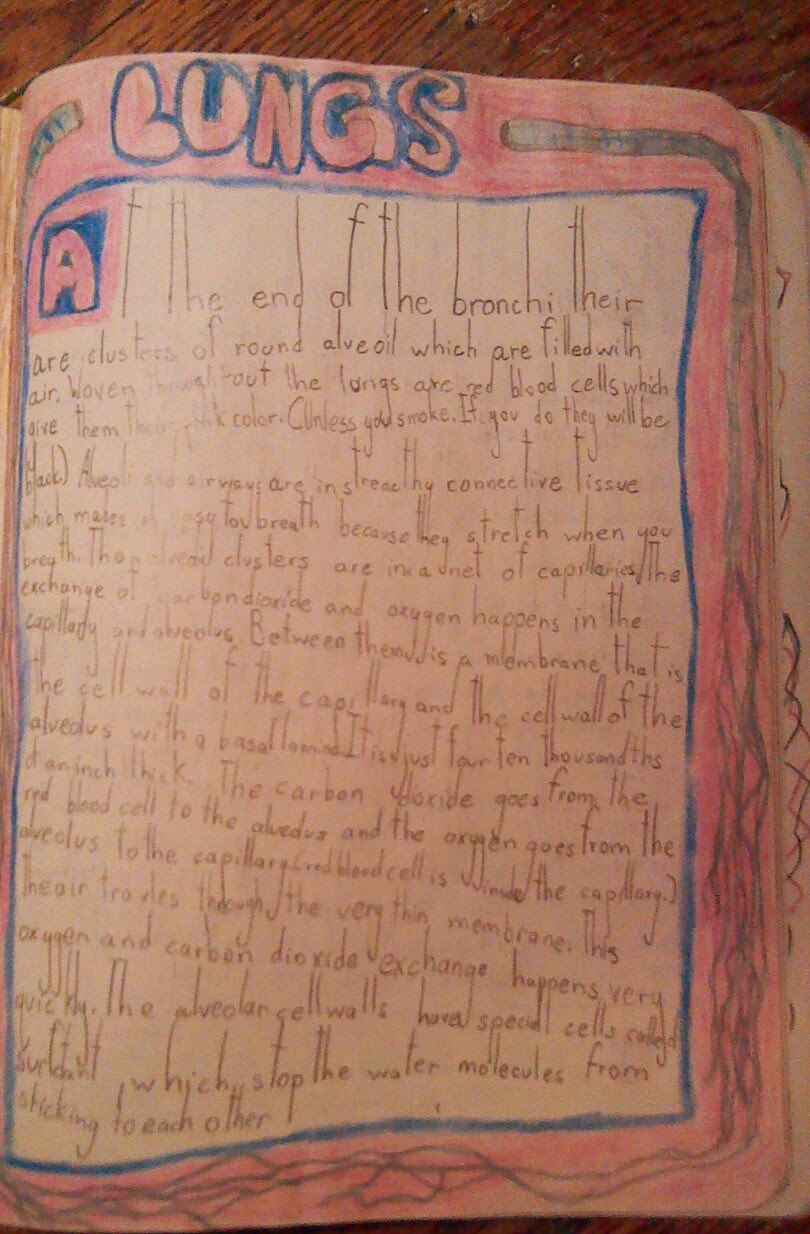 LUNGS
At the end of the bronchi their
are clusters of round alveoil which are filled with
air. Woven throughout the lungs are red blood cells which
give them their pink color. (Unless you smoke. If you do they will be
black.) Alveoli and airways are in streacthy connective tissue
which makes it easy to breath because they stretch when you
breath. The alveoli clusters are in a net of capillaries. The
exchange of carbondioxide and oxygen happens in the
capillary and alveolus. Between them is a membrane that is
the cell wall of the capillary and the cell wall of the
alveolus with a basal lamina. It is just four ten thousandths
of an inch thick. The carbon dioxide goes from the
red blood cell to the alveolus and the oxygen goes from the
alveolus to the capillary. (red blood cell is inside the capillary.)
The air travles through the very thin membrane. This
oxygen and carbon dioxide exchange happens very
quickly. The alveolar cell walls have special cells called
, which stop the water molecules from
sticking to each other